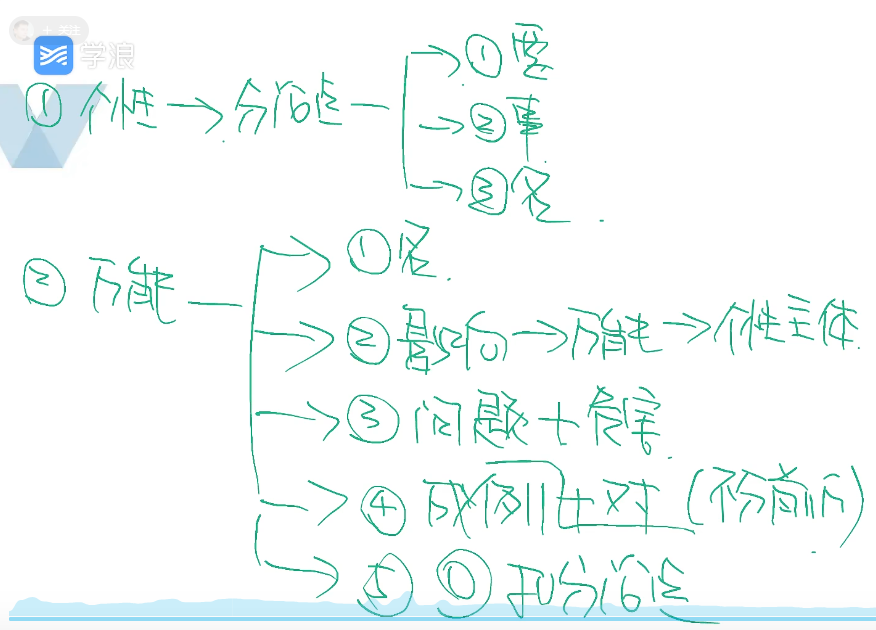 + 关注
学浪
① 个性 → 分论点
→ ① 要
→ ② 事
→ ③
② 万能
→ ①
→ ② 影响 → 万能 → 个性主体
→ ③ 问题 + 危害
→ ④ 成例比对 (不分前后)
→ ⑤ ① 和分论点